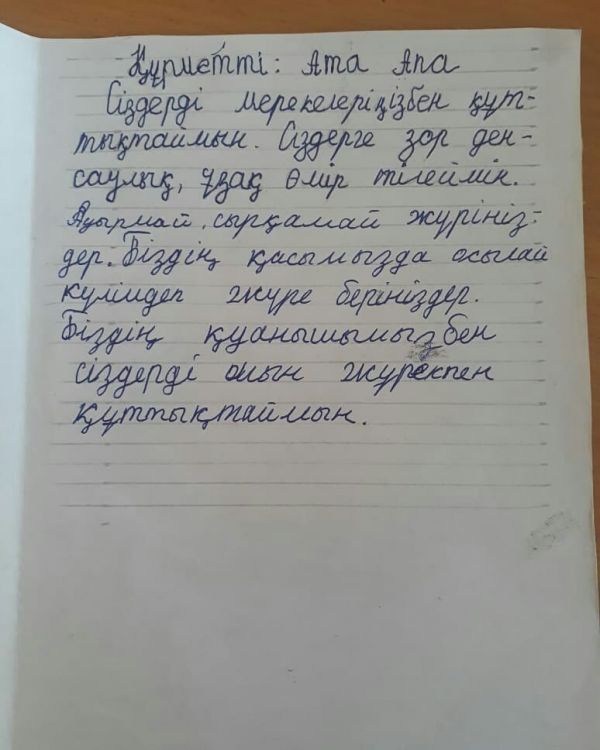 Құрметті: Ата Апа
Сіздерді мерекелеріңізбен құт-
тықтаймын. Сіздерге зор ден-
саулық, ұзақ өмір тілеймін.
Ауырмай, сырқамай жүрініз-
дер. Біздің қасымызда осылай
күлімдеп жүре берініздер.
Біздің қуанышымызбен
сіздерді шын жүрекпен
құттықтаймын.